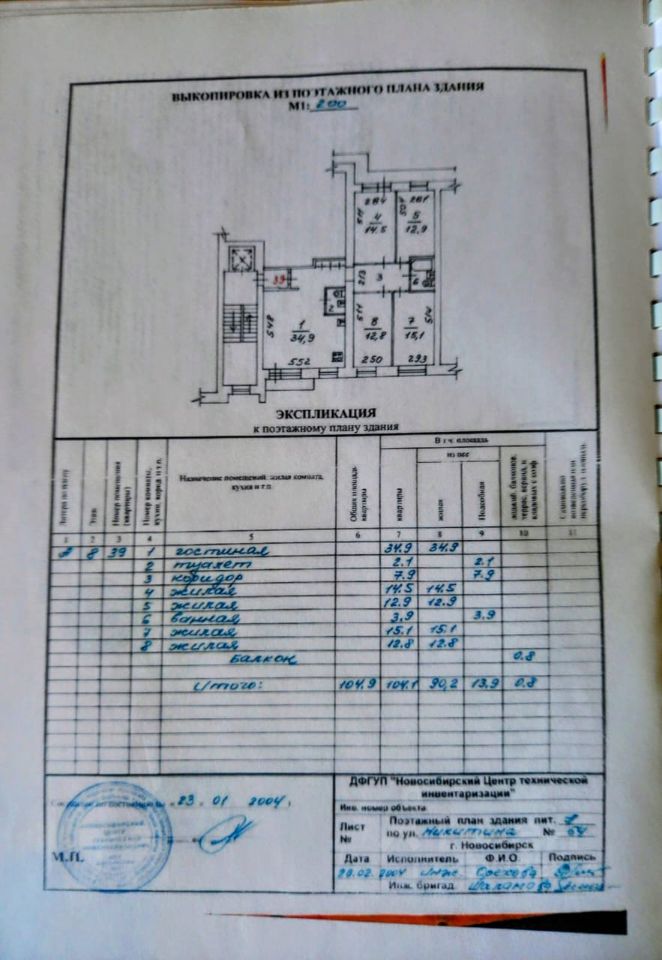 ВЫКОПИРОВКА ИЗ ПОЭТАЖНОГО ПЛАНА ЗДАНИЯ
М1: 200
284 281
511 504
4 5
14.5 12.9
39
213 3
548
1
34,9
552
511 514
8 7
12.8 15,1
250 293
ЭКСПЛИКАЦИЯ
к поэтажному плану здания
Литера по плану
Этаж
Номер помещения (квартиры)
Номер комнаты, кухни, корид. и т.п.
Назначение помещений: жилая комната, кухня и т.п.
Общая площадь квартиры
В т.ч. площадь
квартиры
из нее
жилая
Подсобная
лоджий, балконов, террас, веранд, и кладовых с коэф.
1 2 3 4 5 6 7 8 9 10 11
8 39 1 гостиная 34.9 34.9
2 туалет 2.1 2.1
3 коридор 7.9 7.9
4 жилая 14.5 14.5
5 жилая 12.9 12.9
6 ванная 3,9 3.9
7 жилая 15.1 15.1
8 жилая 12.8 12.8
Балкон 0.8
Итого: 104.9 104.1 90,2 13,9 0.8
ДФГУП "Новосибирский Центр технической
инвентаризации"
Инв. номер объекта
Составлен по состоянию на " 23 . 01 2004 г
Лист
№
Поэтажный план здания лит.
по ул. Никитина № 64
г. Новосибирск
М.П.
Дата Исполнитель Ф.И.О. Подпись
2004 Инж.
Инж. бригад.